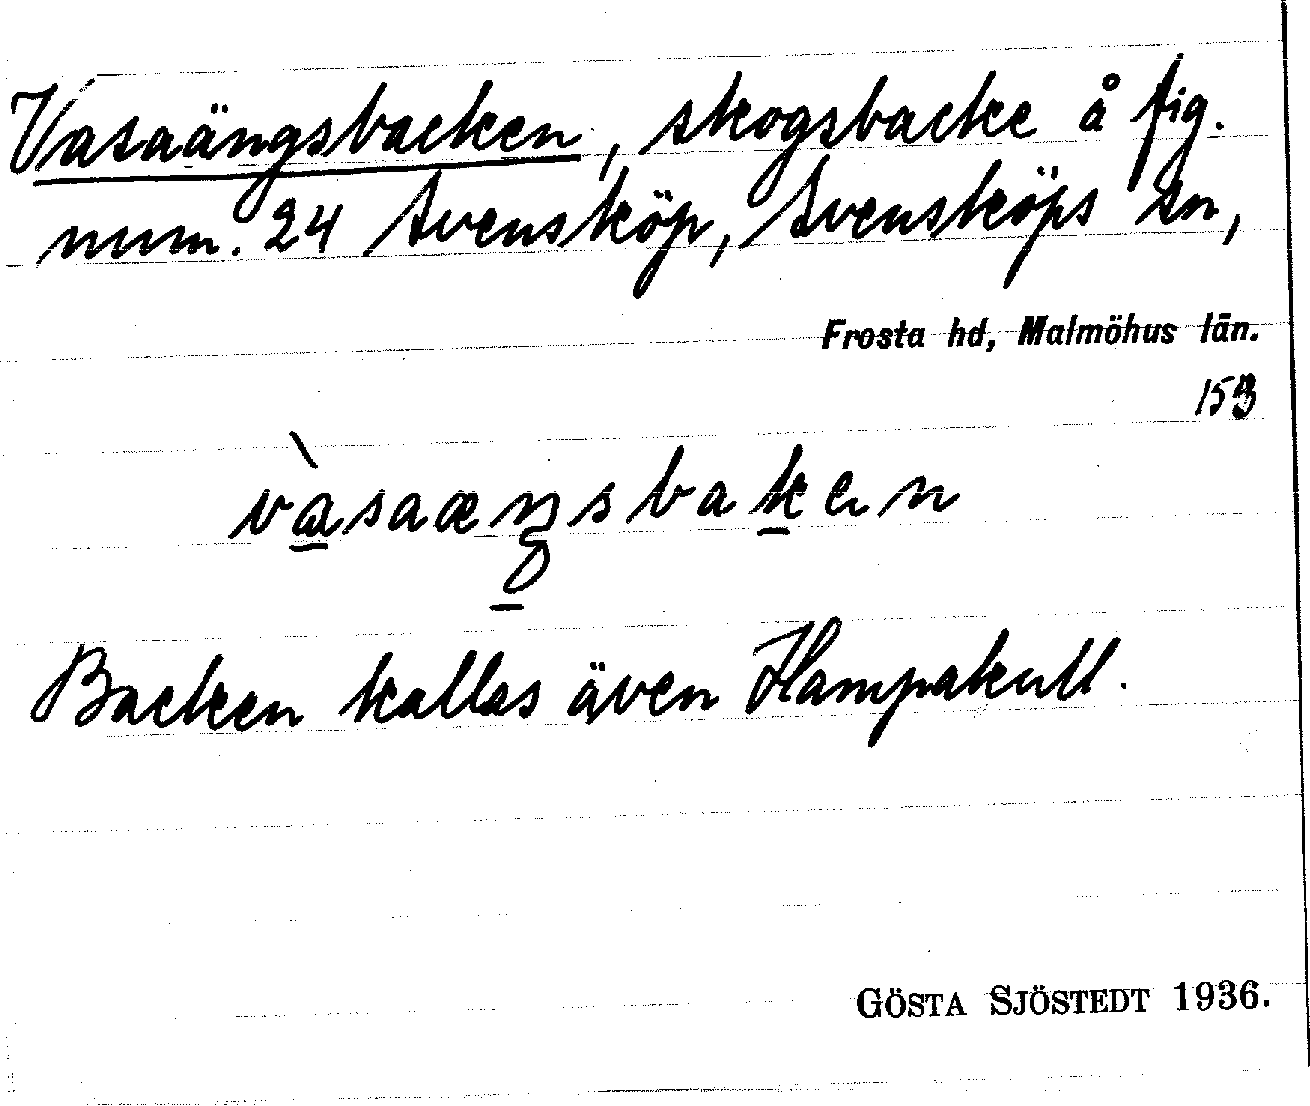 Vasaängsbacken, skogsbacke å fig.
num. 24 Svensköp, Svensköps sn,
Frosta hd, Malmöhus län.
153
vàsaæŋsbaken
Backen kallas även Hampakull.
GÖSTA SJÖSTEDT 1936.